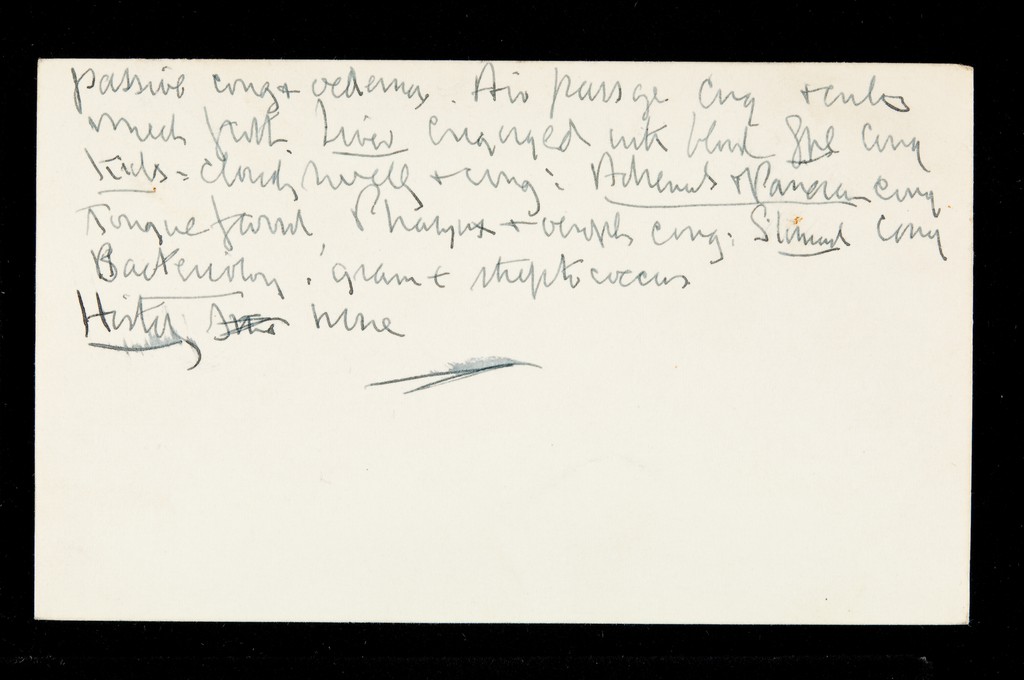 passive cong + oedema. Air passage cong
much froth. Liver engorged with blood Spl cong
Kids = cloudy swelly + cong: Adrenals + Pancrea cong
Tongue furred, Pharynx + oesoph cong: Stomach cong
Bacteriology: gram + streptococcus
Histol none